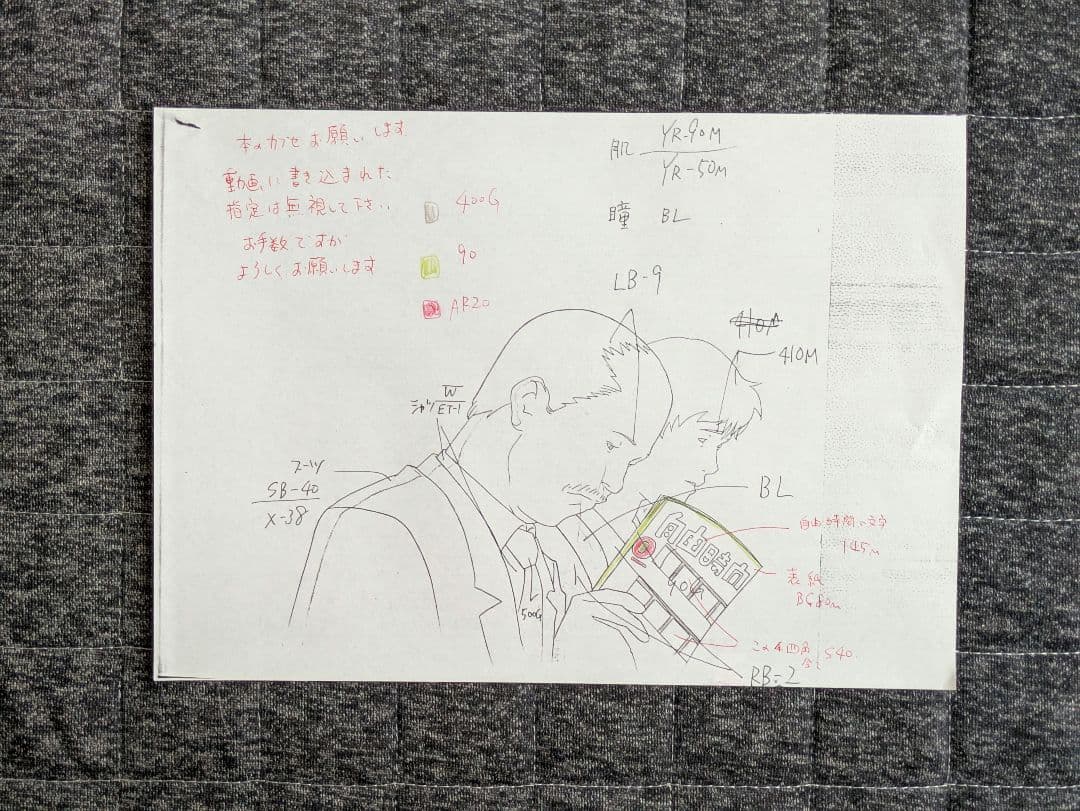 本のカゲセお願いします
動画に書き込まれた
指定は無視して下さい
お手数ですが
よろしくお願いします
400G
90
AR20
肌 YR-90M
YR-50M
瞳 BL
LB-9
410A
410M
シャツ W
ET-1
スーツ
SB-40
X-38
BL
自由時間の文字
T45M
自由時間
904
表紙
BG80M
500G
この4四角
全て 540
RB-2